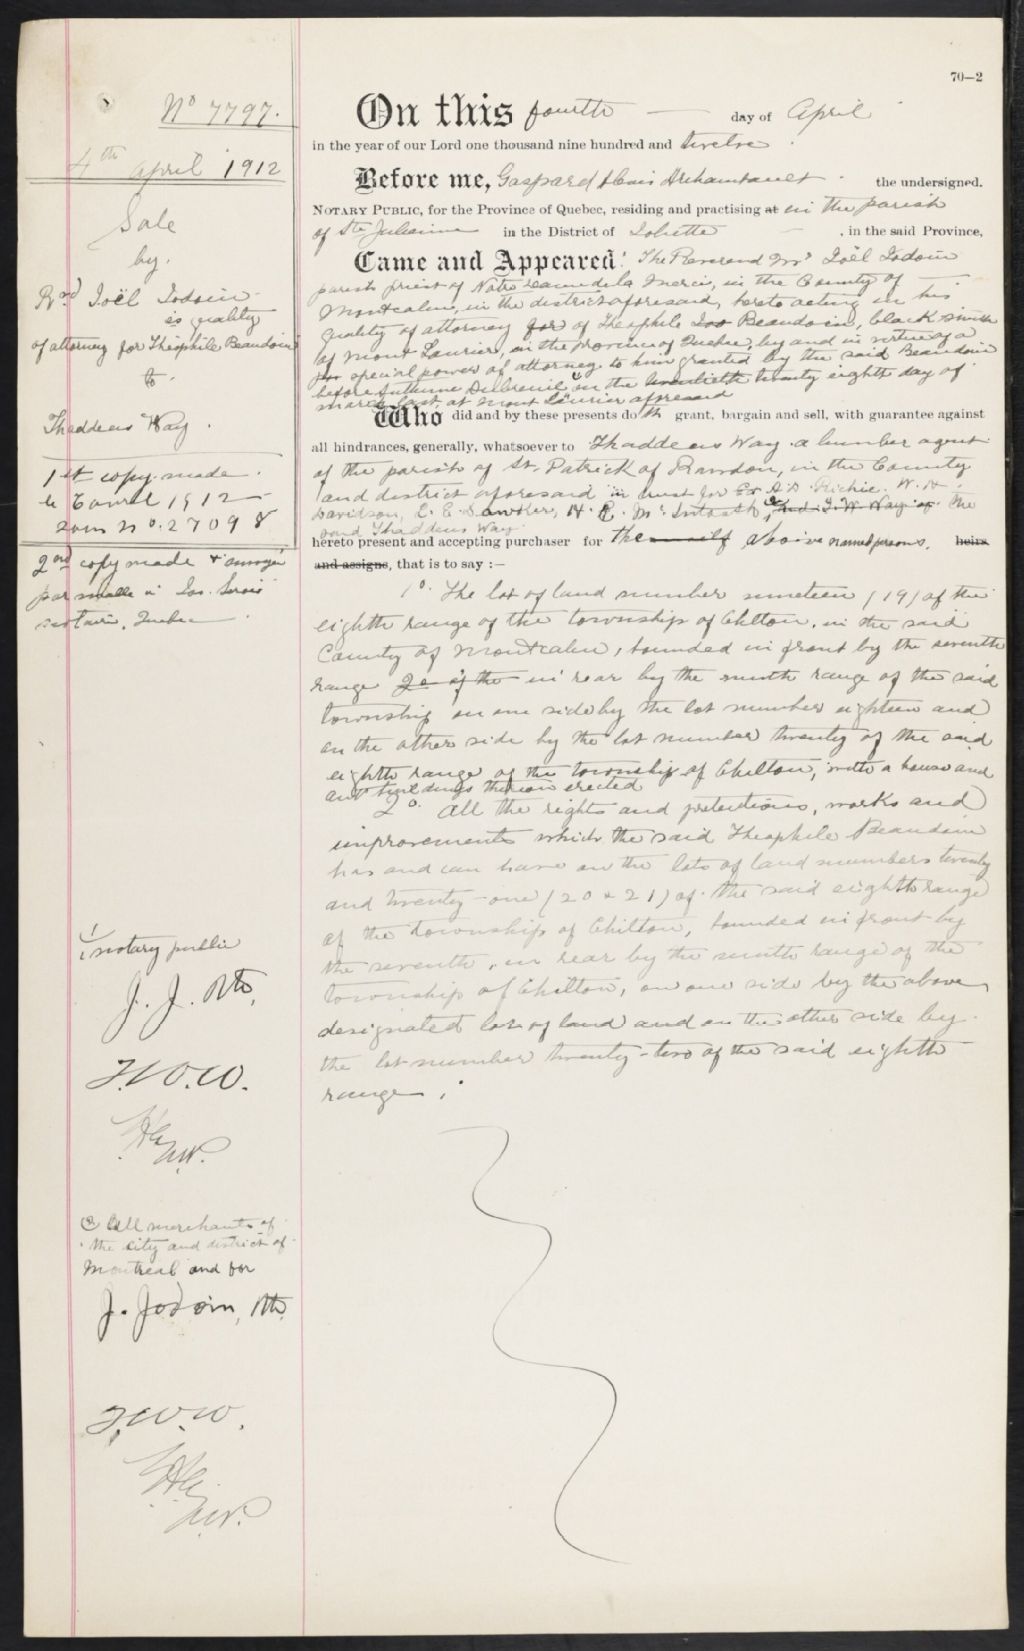 70—2
No 7797.
4th April 1912
Sale
by.
Rvd Joël Jodoin
ès quality
of attorney for Théophile Beaudoin
to.
Thaddeus Way.
1st copy made.
le 6 avril 1912
sous no. 27098
2nd copy made & envoyé
par malle à Jos. Sirois
notaire, Quebec
On this fourth — day of April
in the year of our Lord one thousand nine hundred and twelve.
Before me, Gaspard Archambault the undersigned.
Notary Public, for the Province of Quebec, residing and practising at in the parish
of Ste Julienne in the District of Joliette —, in the said Province,
Came and Appeared: The Reverend Mr Joël Jodoin
parish priest of Notre Dame de la Merci, in the County of
Montcalm, in the district aforesaid, hereto acting in his
quality of attorney for of Théophile Beaudoin, black smith
of Mont Laurier, in the province of Quebec, by and in virtue of a
special power of attorney to him granted by the said Beaudoin
before Dubreuil on the twentieth twenty eighth day of
march last, at Mont Laurier aforesaid
Who did and by these presents doth grant, bargain and sell, with guarantee against
all hindrances, generally, whatsoever to Thaddeus Way. a lumber agent
of the parish of St. Patrick of Rawdon, in the County
and district aforesaid in trust for Ritchie. W. H.
Davidson, H. McIntosh, and T. W. Way The
said Thaddeus Way
hereto present and accepting purchaser for themself above named persons, heirs
and assigns, that is to say :—
1o. The lot of land number nineteen (19) of the
eighth range of the township of Chilton, in the said
County of Montcalm, bounded in front by the seventh
range 2o of the in rear by the ninth range of the said
township on one side by the lot number eighteen and
on the other side by the lot number twenty of the said
eighth range of the township of Chilton, with a house and
out buildings thereon erected
2o. All the rights and pretentions, works and
improvements which the said Theophile Beaudoin
has and can have on the lots of land numbers twenty
and twenty-one (20 & 21) of the said eighth range
of the township of Chilton, bounded in front by
the seventh, in rear by the ninth range of the
township of Chilton, on one side by the above
designated lot of land and on the other side by
the lot number twenty-two of the said eighth
range.
notary public
J. J. Ptr.
T.W.W.
@ All merchants of
the city and district of
Montreal and for
J. Jodoin, Ptr.
T.W.W.